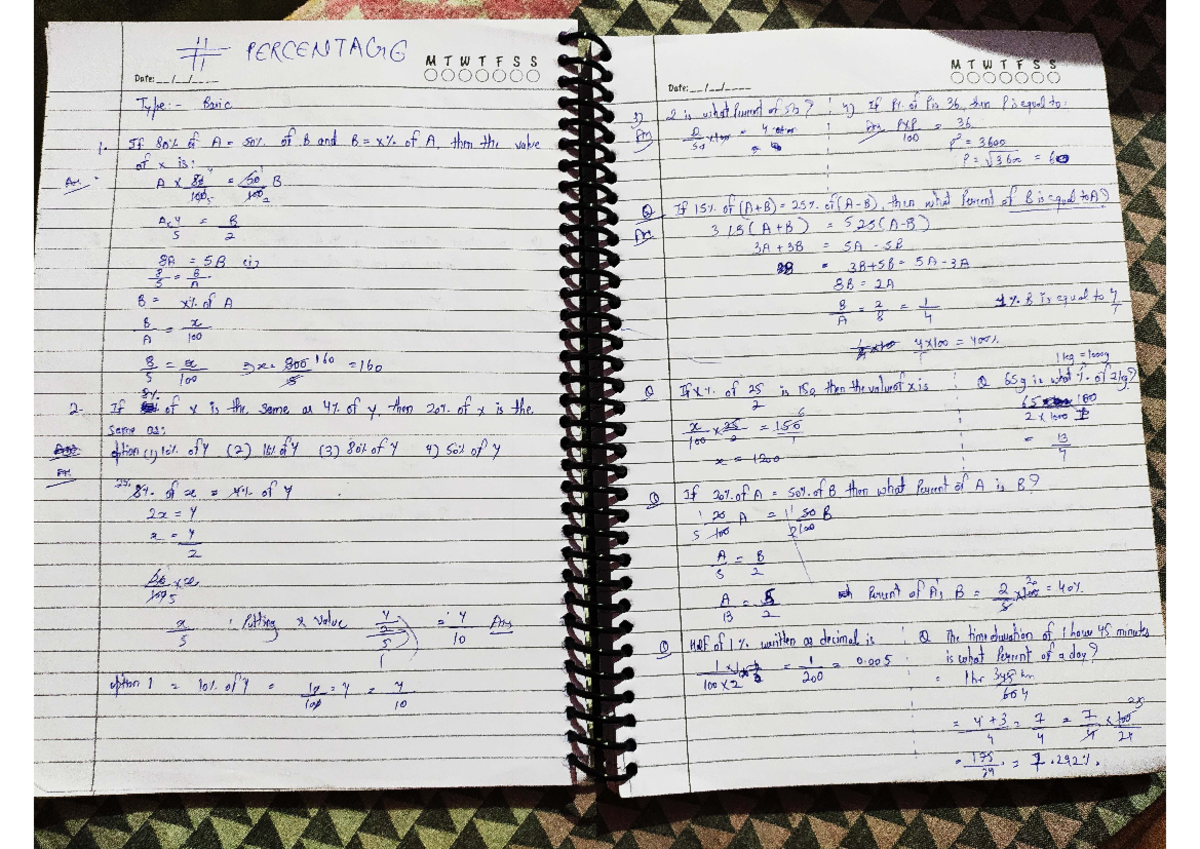 # PERCENTAGE
M T W T F S S
Date: __/__/____
Type:- Basic
1. If 80% of A = 50% of B and B = x% of A, then the value
of x is:
Ans
A × 80/100 = 50/100 B
A×4/5 = B/2
8A = 5B (i)
8/5 = B/A
B = x% of A
B/A = x/100
8/5 = x/100 x = 800/5 160 = 160
2. If 8% of x is the same as 4% of y, then 20% of x is the
same as:
option (1) 10% of Y (2) 16% of Y (3) 80% of Y 4) 50% of Y
Ans
8% of x = 4% of Y
2x = Y
x = Y/2
20/100 5 × x
x/5 : Putting x value Y/2/5 = Y/10 Ans
option 1 = 10% of Y = 10/100 Y = Y/10
M T W T F S S
Date: __/__/____
3) 2 is what percent of 50?
Ans 2/50 × 100 = 4
4) If P% of P is 36, then P is equal to:
Ans P×P/100 = 36
P² = 3600
P = √3600 = 60
Q If 15% of (A+B) = 25% of (A-B), then what Percent of B is equal to A?
Ans 3 15(A+B) = 5 25(A-B)
3A + 3B = 5A - 5B
= 3B+5B = 5A - 3A
8B = 2A
B/A = 2/8 = 1/4 % B is equal to 4/1
4×100/1 = 400%
Q If x% of 25/2 is 150, then the value of x is
x/100 × 25/2 = 150/1 6
x = 1200
1kg = 1000g
Q 65g is what % of 2kg?
65 100
2 × 1000
= 13/4
Q If 20% of A = 50% of B then what Percent of A is B?
1 20/100 5 A = 1 50/100 2 B
A/5 = B/2
A/B = 5/2 Percent of A is B = 2/5 × 100 20 = 40%
Q Half of 1% written as decimal is
1×1/100×2 = 1/200 = 0.005
Q The time duration of 1 hour 45 minutes
is what Percent of a day?
= 1hr 3 45 hr
60 4
= 4+3/4 = 7/4 = 7/4 × 100/24 25
= 175/24 = 7.292%.